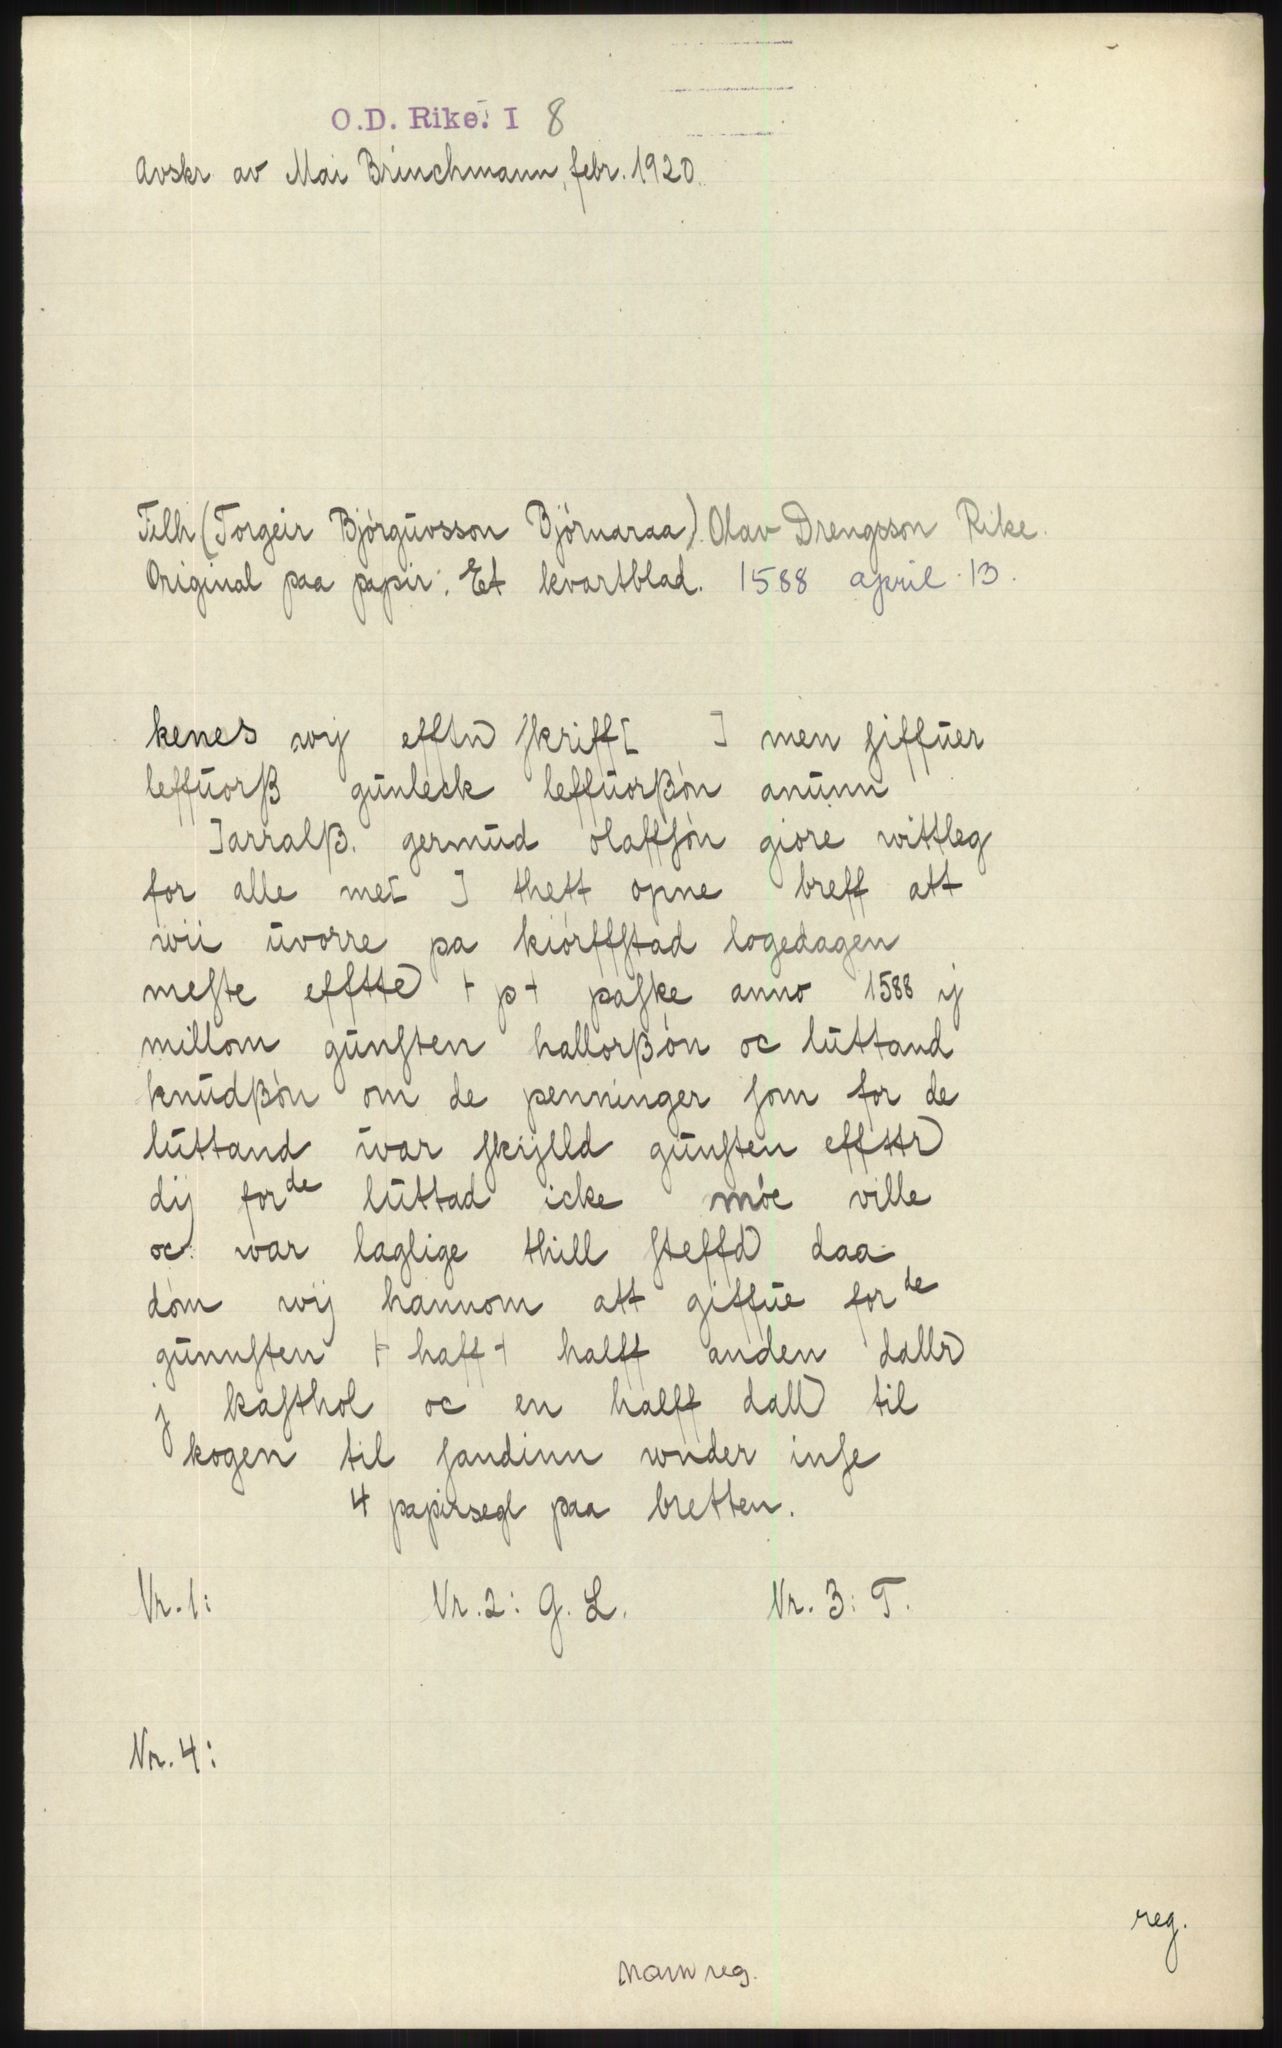 O.D. Rike. I 8
Avskr av Mai Brinchmann, febr. 1920.
Tilh (Torgeir Bjórgūvsson Bjórnaraa). Olav Drengsson Rike.
Original paa papir: Et kvartblad. 1588 april 13.
kenes wij efftn ſkriff[ ] men ſiffūer
leffūorß gūnleck leffūorßón anūnn
]arralß. germūd olaffſón giore wittleg
for alle me[ ] thett opne breff att
wii ūvorre pa kiórffſtad logedagen
neſte efftte ⊢ p ⊣ paſke anno 1588 ij
millom gūnſten hallorßón oc lūttand
knūdßón om de penninger ſom for de
lūttand ūar ſkijlld gūnſten effttr
dij for de lūttad icke móe ville
oc war laglige thill ſteffd daa
dóm wij hannom att giffūe for de
gūnnſten ⊢ haff ⊣ halff anden dallr
j kaſthol oc en halff dall til
kogen til ſandinn wnder inſe
4 papirsegl paa bretten.
Nr. 1: Nr. 2: G. L. Nr. 3: T.
Nr. 4:
reg.
navn reg.